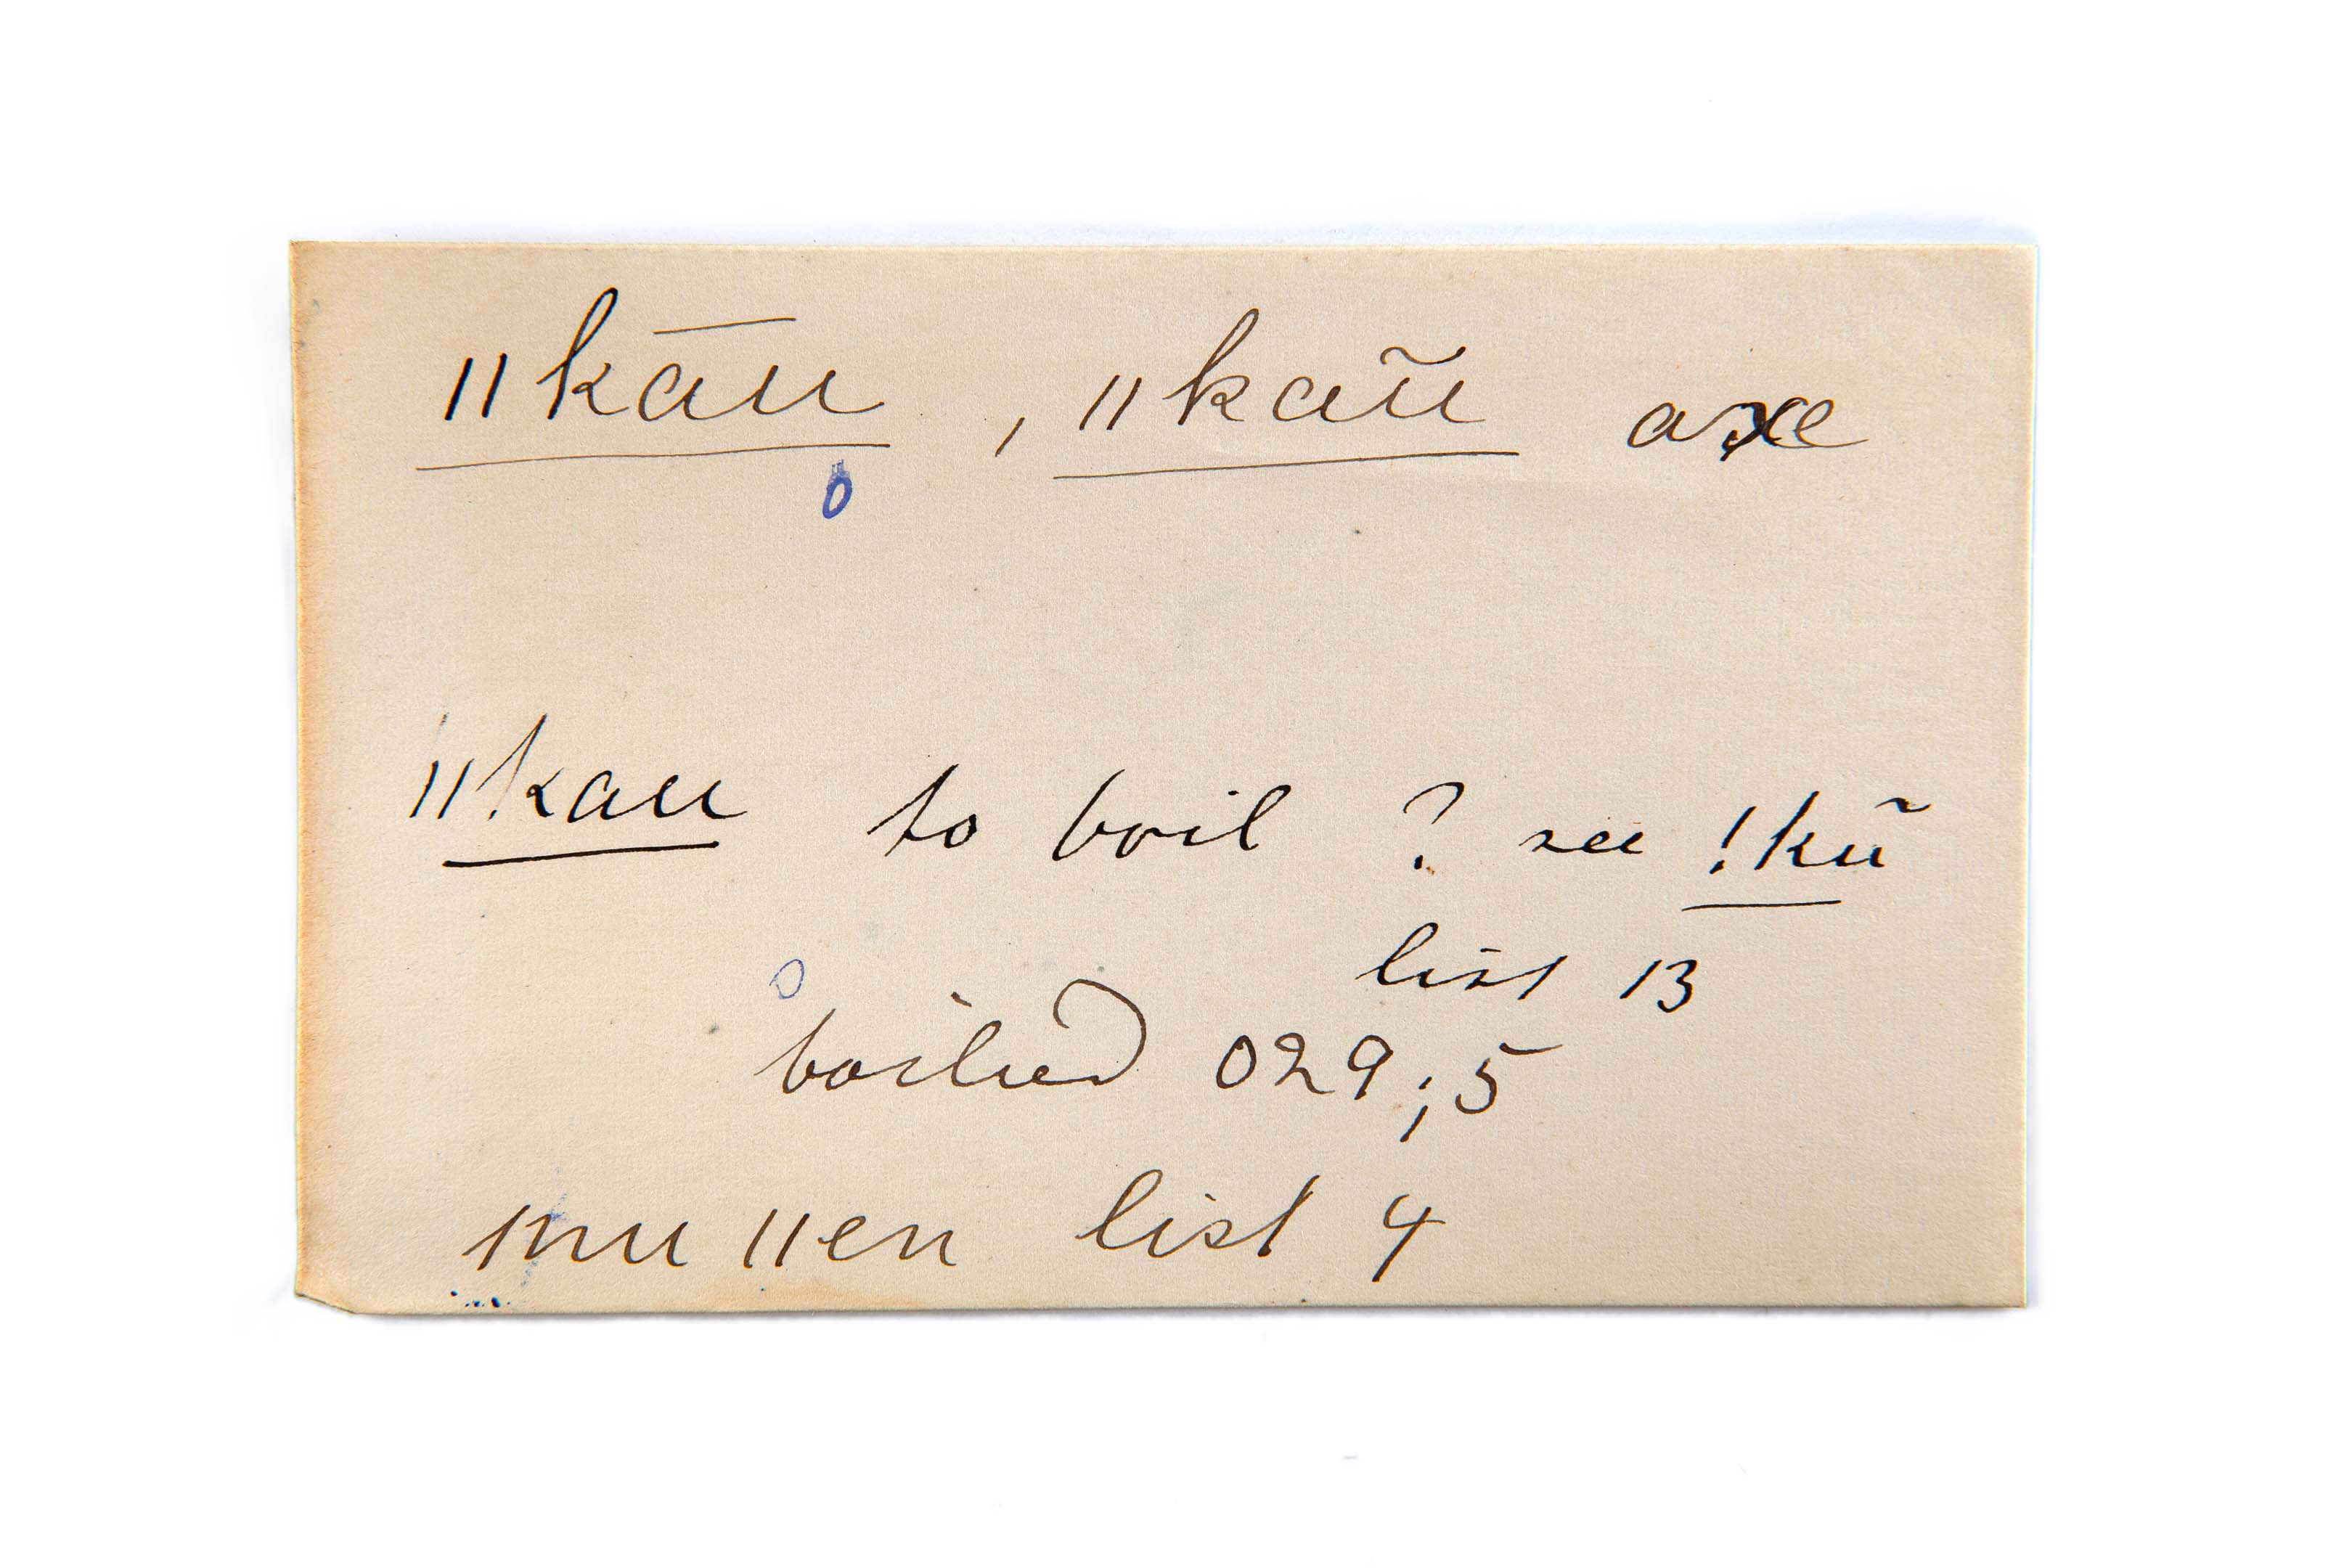 ǁkāū , ǁkaũ axe
ǁkau to boil ? see !kũ
list 13
boiled 029;5
ǀnu ǁen list 4